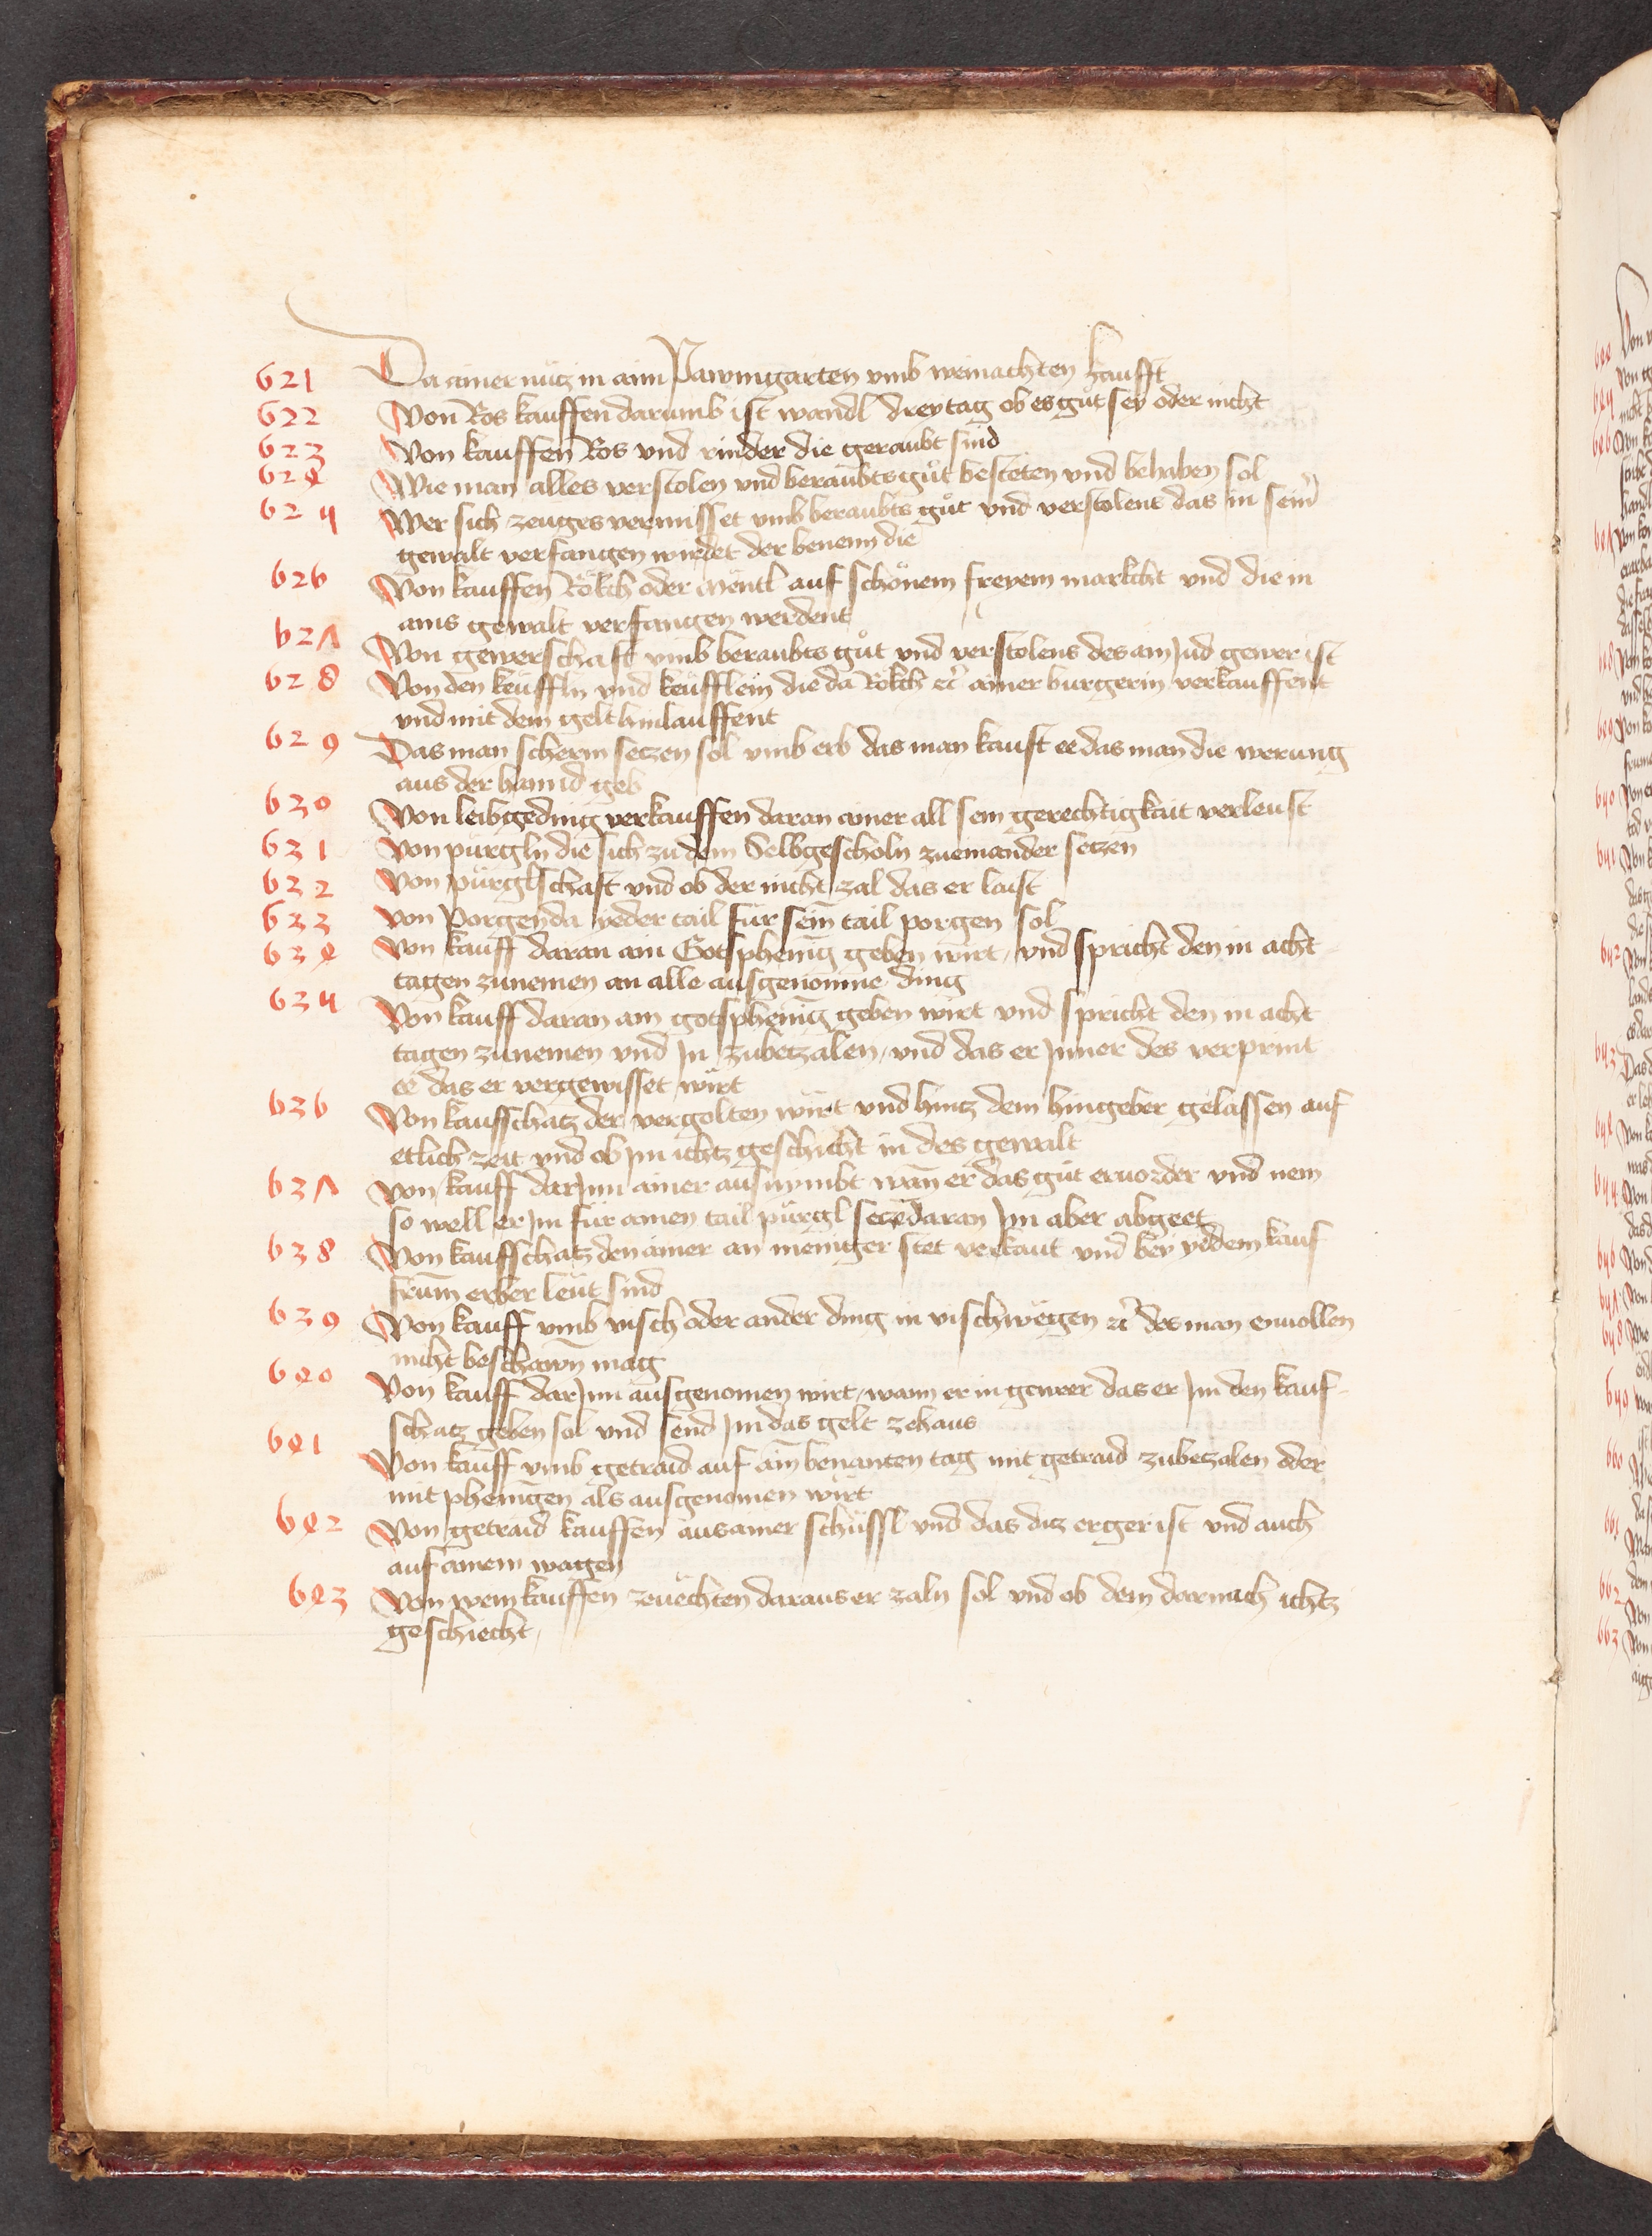 621 Da ainer nutz in aim Pawmgarten vmb weinachten kaufft
622 Von Ros kauffen darumb ist wandl drey tag ob es gut sey oder nicht
623 Von kauffen Ros vnd rinder die geraubt sind
624 Wie man alles verstolen vnd beraubts gůt besteten vnd behaben sol
625 Wer sich zeuges vermisset vmb beraubts gůt vnd verstolens das in seinr
gewalt verfangen wirdet der benenn die
626 Von kauffen Rökch oder Mentl auf schönem freyem markcht vnd die in
ains gewalt verfangen werdent
627 Von gewerschaft vmb beraubts gůt vnd verstolens des ain Jud gewer ist
628 Von den keüffln vnd keüfflein die da Rökch etc ainer burgerin verkauffent
vnd mit dem gelt hinlauffent
629 Das man scherm setzen sol vmb erb das man kauft ee das man die werung
aus der hannd geb
630 Von leibgeding verkauffen daran ainer all sein gerechtigkait verleust
631 Von pürgln die sich zu dem Selbgescholn zueinander setzen
632 Von pürglschaft vnd ob der nicht zal das er laist
633 Von Porgen da yeder tail für sein tail porgen sol
634 Von kauff daran ain Gotsphenig geben wirt, vnd spricht den in acht
tagen zunemen an alle ausgenomne ding
635 Von kauff daran ain gotsphenig geben wirt vnd spricht den in acht
tagen zunemen vnd Jn zubetzalen, vnd das er Jnner des verprint
ee das er vergewisset wirt
636 Von kaufschatz der vergolten wirt vnd hintz dem hingeber gelassen auf
etlich zeit vnd ob im ichtz geschicht in des gewalt
637 Von kauff darJnn ainer ausnymbt wann er das gut eruorder vnd nem
so well er Jm für ainen tail pürgl setzen daran Jm aber abgeet
638 Von kaufschatz den ainer an meniger stet verkauft vnd bey yedem kauf
frum erber leüt sind
639 Von kauff vmb visch oder ander ding in vischwegen etc des man enuollen
nicht beschawn mag
640 Von kauff darJnn ausgenomen wirt, wann er in gewer das er Jm den kauf-
schatz geben sol vnd send Jm das gelt zehaus
641 Von kauff vmb getraid auf ain benanten tag mit getraid zubetzalen oder
mit phenigen als ausgenomen wirt
642 Von getraid kauffen aus ainer schüssl vnd das diz erger ist vnd auch
auf ainem wagen
643 Von wein kauffen zeuechten daraus er zaln sol vnd ob dem darnach ichtz
geschiecht,